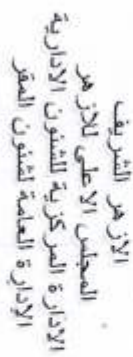 الازهر الشريف
المجلس الاعلى للازهر
الادارة المركزية للشئون الادارية
الإدارة العامة لشئون المقر